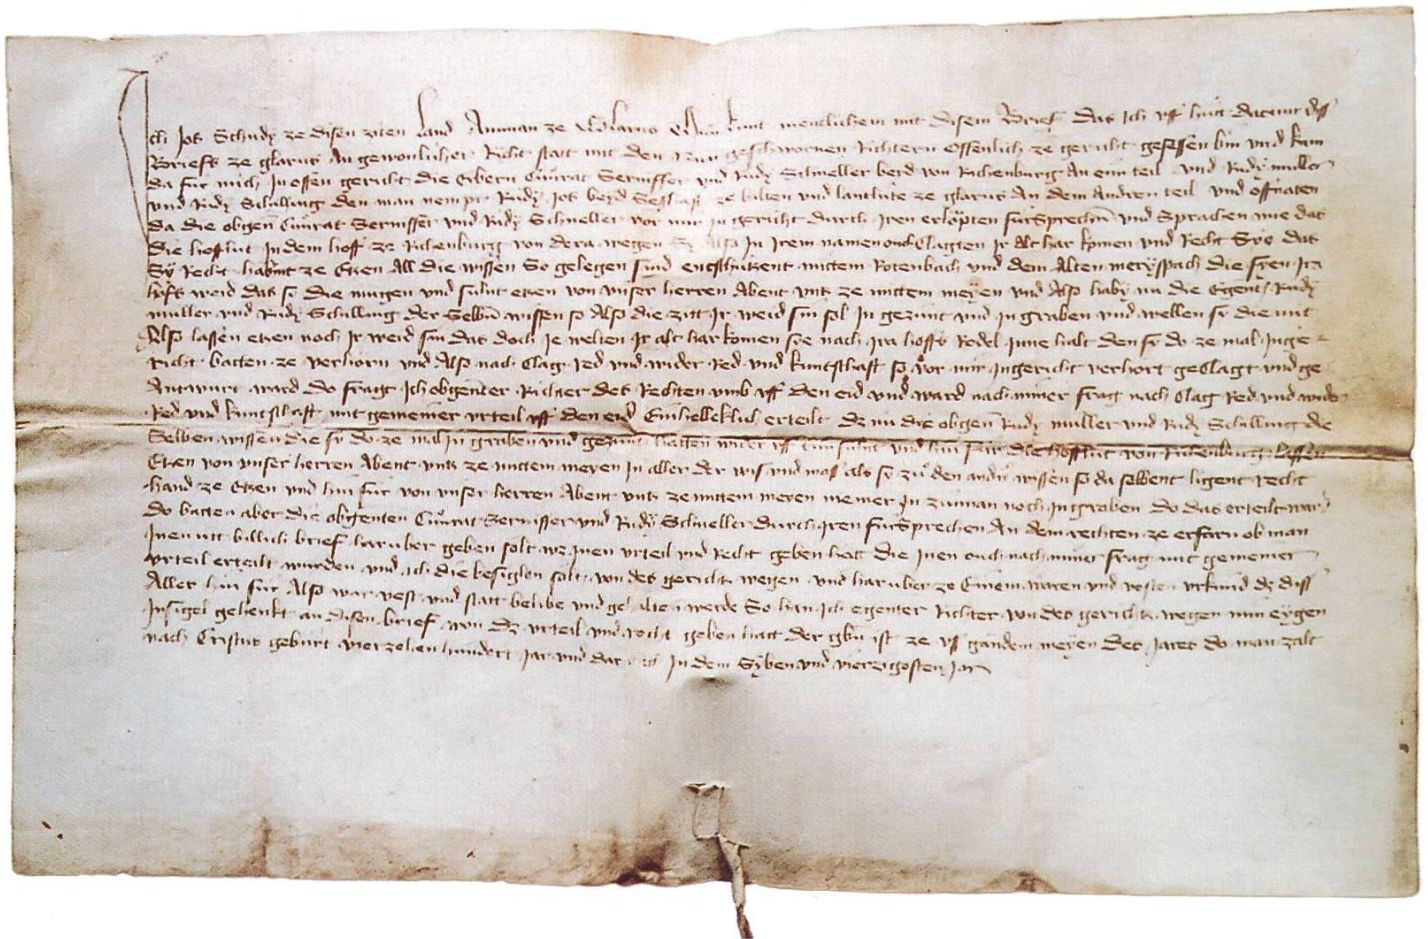 Ich Jos Schudy ze disen ziten Land Amman ze Glarus Thůn kunt menclichem mit disem Brief Das ich uff hütt datum diss
Briefs ze glarus An gewonlicher Richt statt mit den geschwornen Richtern Offenlich ze gericht gesessen bin und kam
da für mich In offen gericht die Erbern Cůnrat und Rudy Schneller beid von Richenburg An eim teil und Rudy müller
und Rudy Schilling den man nempt Rudy Jos beyd Sesshafft ze bilten und lantlüte ze glarus An dem Andren teil und offneten
da die obgen Cůnrat und Rudy Schneller vor mir In gericht durch Iren erlopten fürsprechen und Sprachen wie das
die hofflüt In dem hoff ze Richenburg von dera wegen Sy Also In Irem namen ouch Clagten Ir Alt har komen und Recht Sye das
Sy Recht habint ze Etzen All die wissen So gelegen sind entzschützent mittem Rotenbach und dem Alten meryspach die syen Ira
weid das sy die mugen und sulnt etzen von unser herren Abent untz ze mittem meyen und Also haby nu die Egent Rudy
müller und Rudy Schilling der Selben wissen so Also die zitt Ir weid sin sol In gezünt und in graben und wellen sy die nit
Also lassen etzen noch Ir weid sin das doch Ie welten Ir alt harkomen sye nach Ira hoffs Rodel Inne halt den sy do ze mal In ge
richt batten ze verhörn und Also nach Clag Red und wider Red und kuntschafft so vor mir In gericht verhort geClagt und ge
Antwurt ward do fragt Ich obgenter Richter des Rechten umb uff den eid und ward nach miner frag nach Clag Red und wider
Red und kuntschafft mit gemeiner urteil uff den eid Einhelleklich erteilt dz nu die obgen Rudy müller und Rudy Schilling die
Selben wissen die sy do ze mal In graben und gezünt hatten wider uff tun sulnt und hin für die hofflüt von Richenburg lassen
Etzen von unser herren Abent untz ze mittem meyen In aller der wis und mas als sy zů den andern wissen so da selbent ligent recht
hand ze Etzen und hin für von unser herren Abent untz ze mittem meyen niemer In zünnan noch In graben do das erteilt ward
do batten aber die obgenten Cůnrat und Rudy Schneller durch Iren fürsprechen An dem rechten ze erfarn ob man
Inen nit billich brief harüber geben solt wz Inen urteil und Recht geben hatt die Inen ouch nach miner frag mit gemeiner
urteil erteilt wurden und ich die besiglen solt von des gerichtz wegen und harüber ze Einem waren und vesten urkünd dz diss
Alles hin für Also war vest und statt belibe und gehalten werde So han Ich egenter Richter von des gerichtz wegen min eygen
Insigel gehenkt an disen brief won dz urteil und recht geben hatt der gben ist ze us gandem meyen des Jares do man zalt
nach Cristus geburt vierzehen hundert Jar und dar nach In dem Syben und vierzigosten Jar